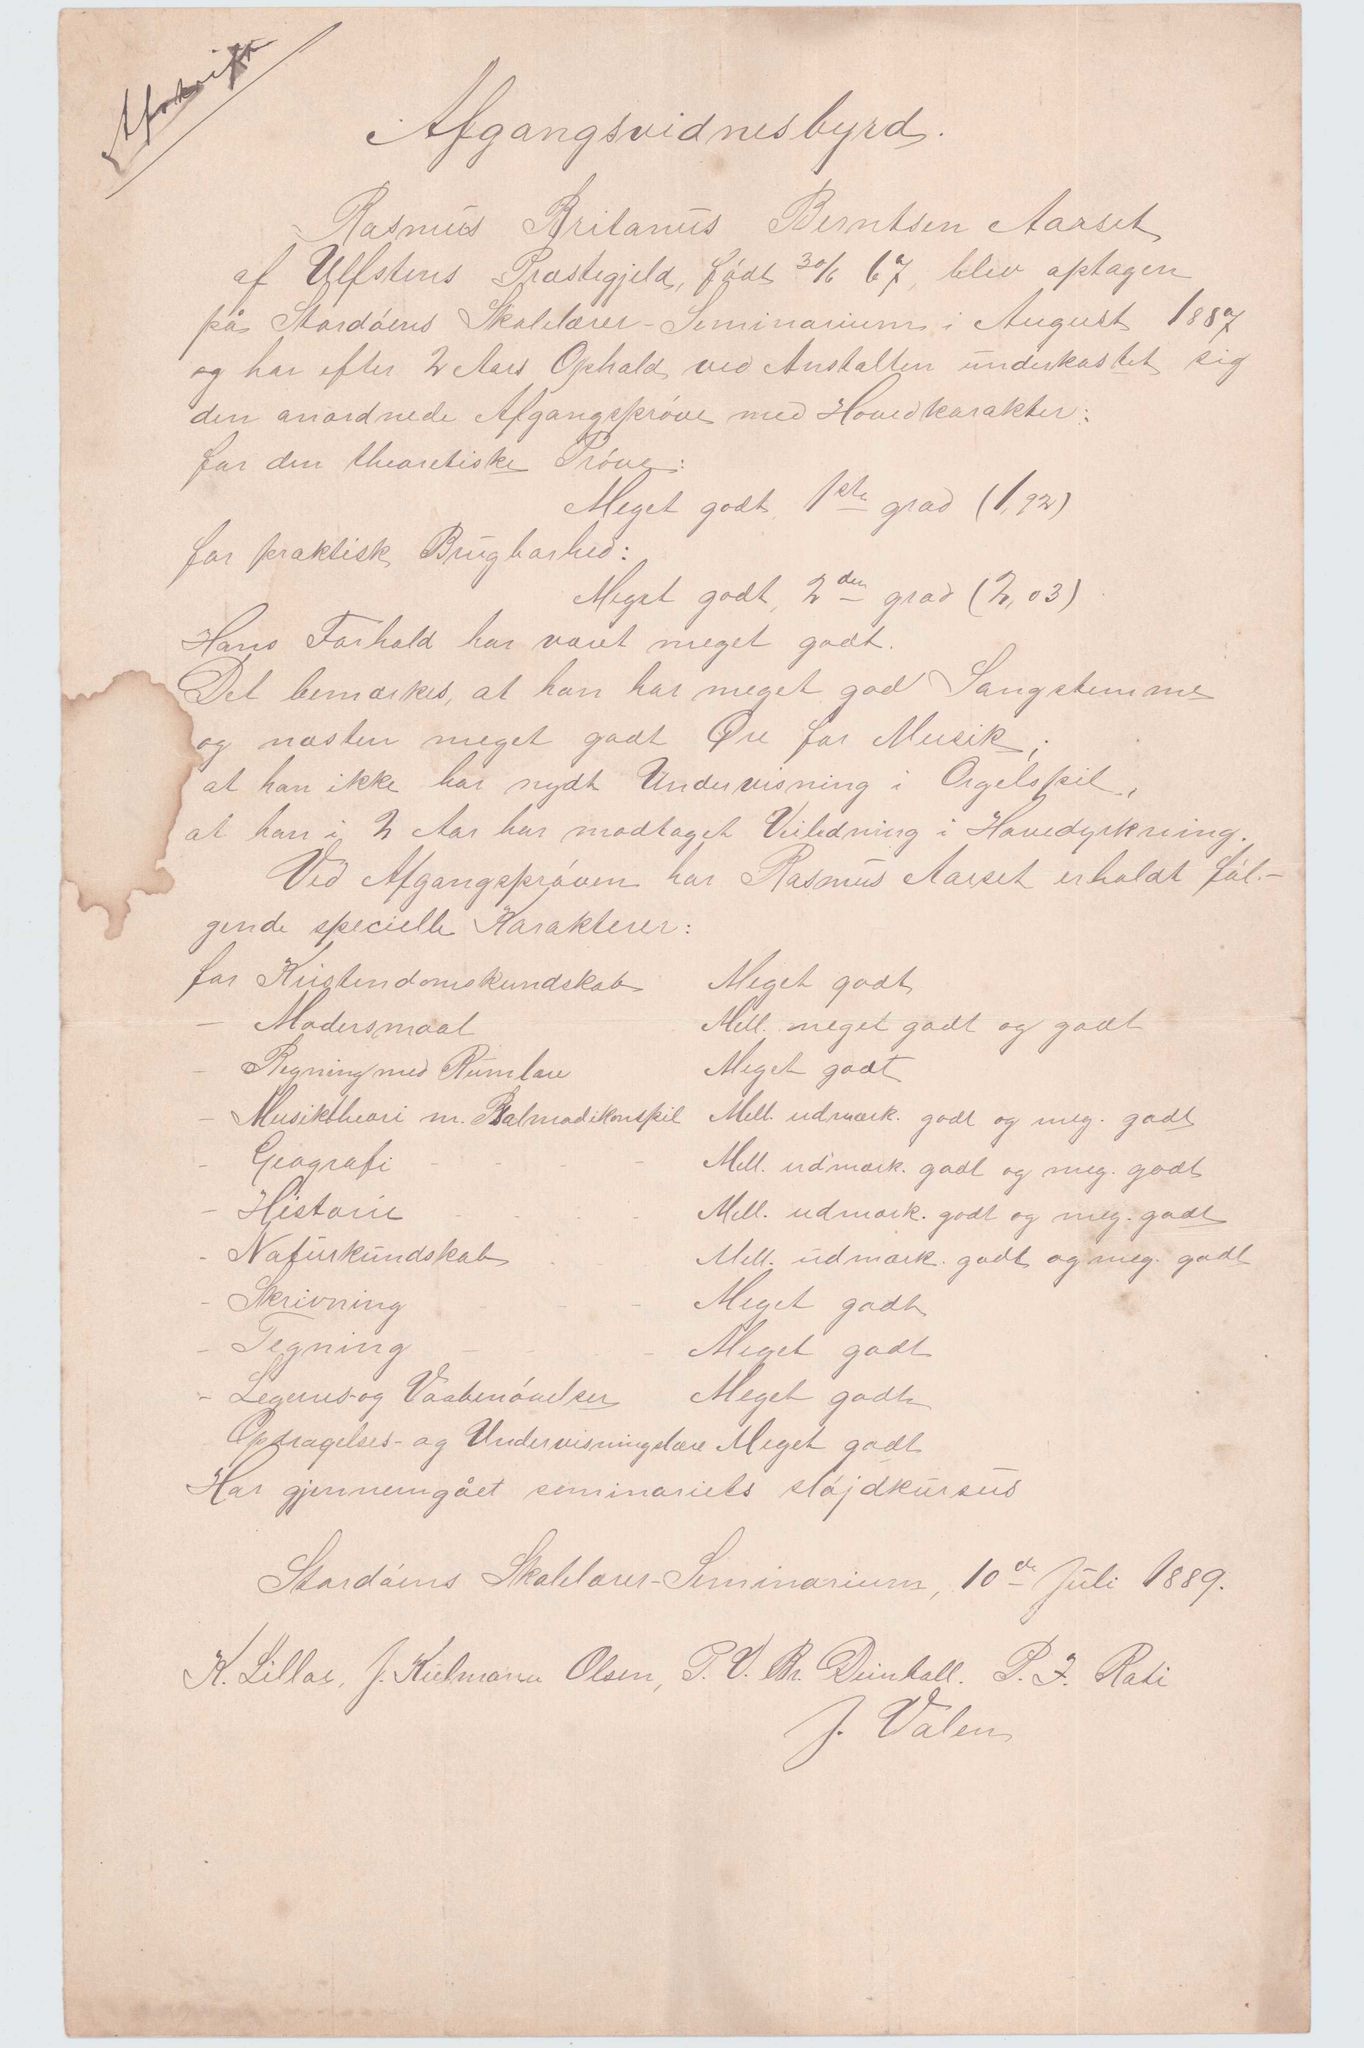 Afskrift
Afgangsvidnesbyrd.
Rasmus Britanus Berntsen Aarset
af Ulfstens Præstegjeld, født 30/6 67, blev optagen
på Stordøens Skolelærer-Seminarium i August 1887
og har efter 2 Aars Ophold ved Anstalten underkastet sig
den anordnede Afgangsprøve med Hovedkarakter:
for den theoretiske Prøve:
Meget godt, 1ste grad (1,92)
for praktisk Brugbarhed:
Meget godt, 2den grad (2,03)
Hans Forhold har været meget godt.
Det bemærkes, at han har meget god Sangstemme
og næsten meget godt Øre for Musik;
at han ikke har nydt Undervisning i Orgelspil,
at han i 2 Aar har modtaget Veiledning i Havedyrkning.
Ved Afgangsprøven har Rasmus Aarset erholdt føl-
gende specielle Karakterer:
for Kristendomskundskab Meget godt
- Modersmaal Mell. meget godt og godt
- Regning med Rumlære Meget godt
- Musiktheori m. Psalmodikonspil Mell. udmærk. godt og meg. godt
- Geografi - - - - Mell. udmærk. godt og meg. godt
- Historie - - - Mell. udmærk. godt og meg. godt
- Naturkundskab - - Mell. udmærk. godt og meg. godt
- Skrivning - - - Meget godt
- Tegning - - - - Meget godt
- Legems- og Vaabenøvelser Meget godt
Opdragelses- og Undervisningslære Meget godt
Har gjennemgået seminariets sløjdkursus
Stordøens Skolelærer-Seminarium, 10de Juli 1889.
K. Lillae, J. Kielmann Olsen, P. V. Br. Deinboll. P. J. Rasi
J. Valen